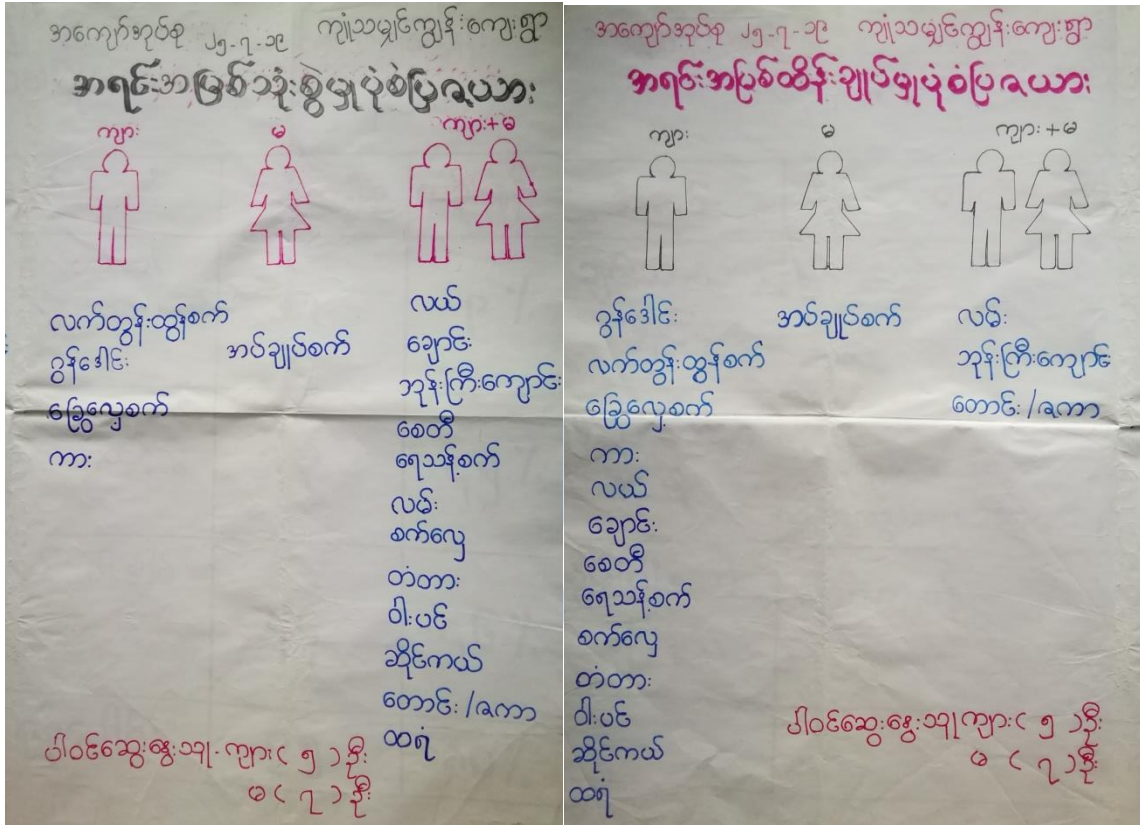 အကျော်အုပ်စု ၂၅-၇-၁၉ ကျုံသမျှင်ကျွန်းကျေးရွာ
အရင်းအမြစ်သုံးစွဲမှုပုံစံပြဇယား
ကျား မ ကျား+မ
လက်တွန်းထွန်စက်
ဂွန်ဒေါင်း
ခြွေလှေ့စက်
ကား
အပ်ချုပ်စက်
လယ်
ချောင်း
ဘုန်းကြီးကျောင်း
စေတီ
ရေသန့်စက်
လမ်း
စက်လှေ
တံတား
ဝါးပင်
ဆိုင်ကယ်
တောင်း/ဇကာ
ထရံ
ပါဝင်ဆွေးနွေးသူ-ကျား(၅)ဦး
မ(၇)ဦး
အကျော်အုပ်စု ၂၅-၇-၁၉ ကျုံသမျှင်ကျွန်းကျေးရွာ
အရင်းအမြစ်ထိန်းချုပ်မှုပုံစံပြဇယား
ကျား မ ကျား+မ
ဂွန်ဒေါင်း
လက်တွန်းထွန်စက်
ခြွေလှေ့စက်
ကား
လယ်
ချောင်း
စေတီ
ရေသန့်စက်
စက်လှေ
တံတား
ဝါးပင်
ဆိုင်ကယ်
ထရံ
အပ်ချုပ်စက်
လမ်း
ဘုန်းကြီးကျောင်း
တောင်း/ဇကာ
ပါဝင်ဆွေးနွေးသူကျား(၅)ဦး
မ(၇)ဦး